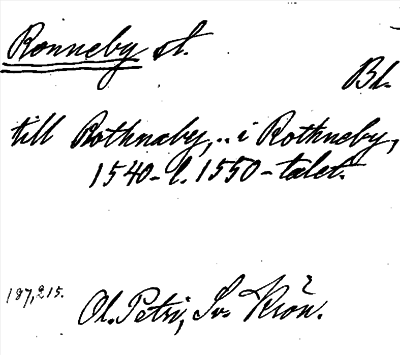 Ronneby st.
Bl.
till Rothnaby,.. i Rothneby,
1540- l. 1550-talet.
187,215.
Ol. Petri, Sv. Krön.